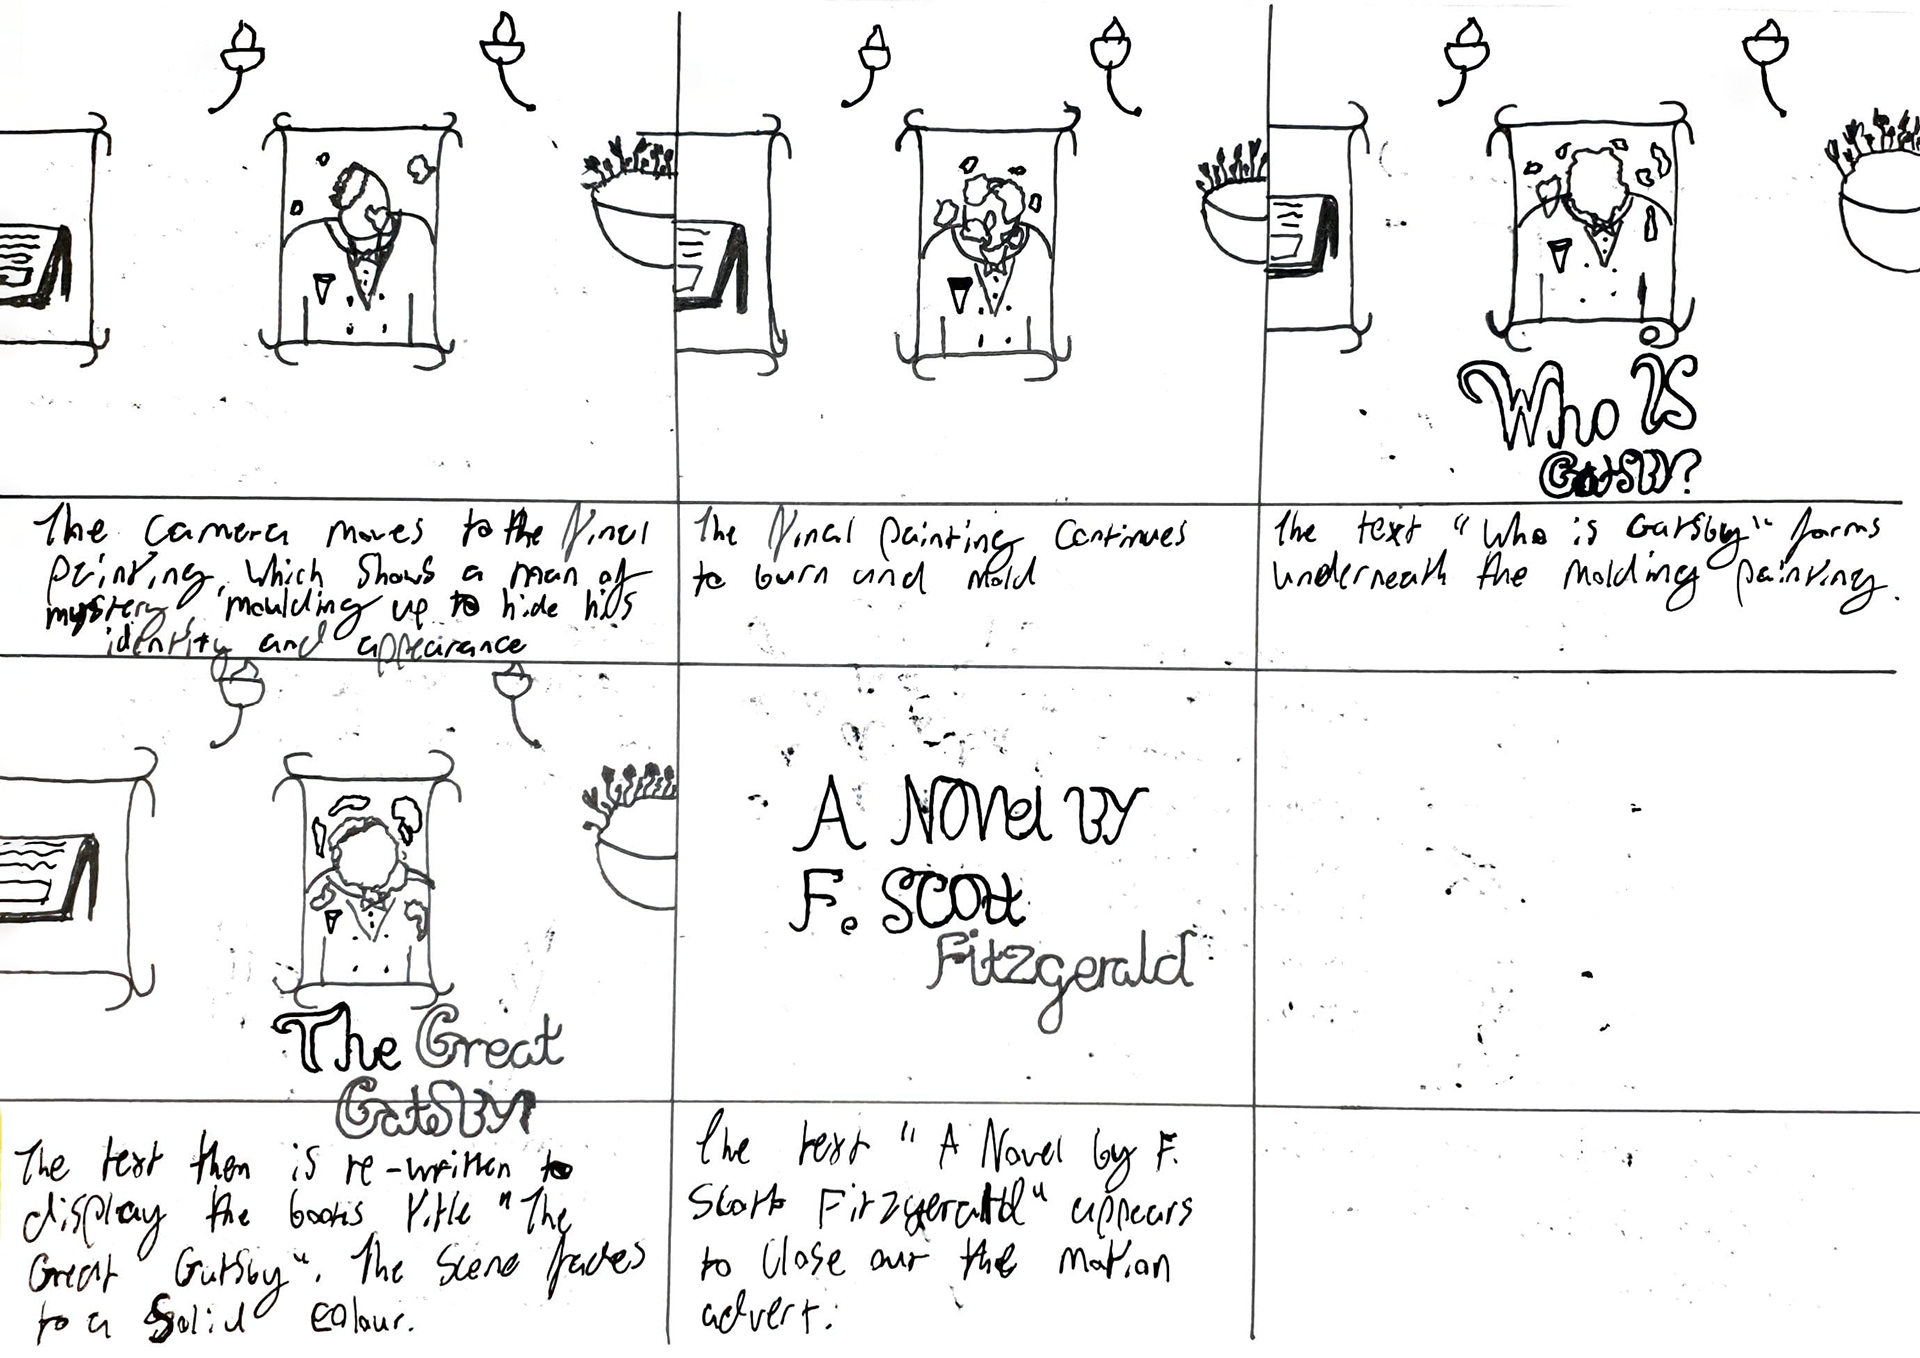 Who IS
GatSBY?
The camera moves to the final
painting, which shows a man of
mystery moulding up to hide his
identity and appearance
The final painting continues
to burn and mold
The text "Who is Gatsby" forms
underneath the molding painting.
The Great
GatsBY
A Novel BY
F. Scott
Fitzgerald
The text then is re-written to
display the books title "The
Great Gatsby". The scene fades
to a solid colour.
The text "A Novel by F.
Scott Fitzgerald" appears
to close out the motion
advert.